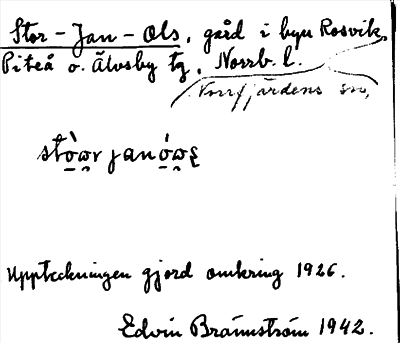 Stor-Jan-Ols, gård i byn Rosvik,
Piteå o. Älvsby tg, Norrb. l.
Norrfjärdens sn,
Uppteckningen gjord omkring 1926.
Edvin Brännström 1942.